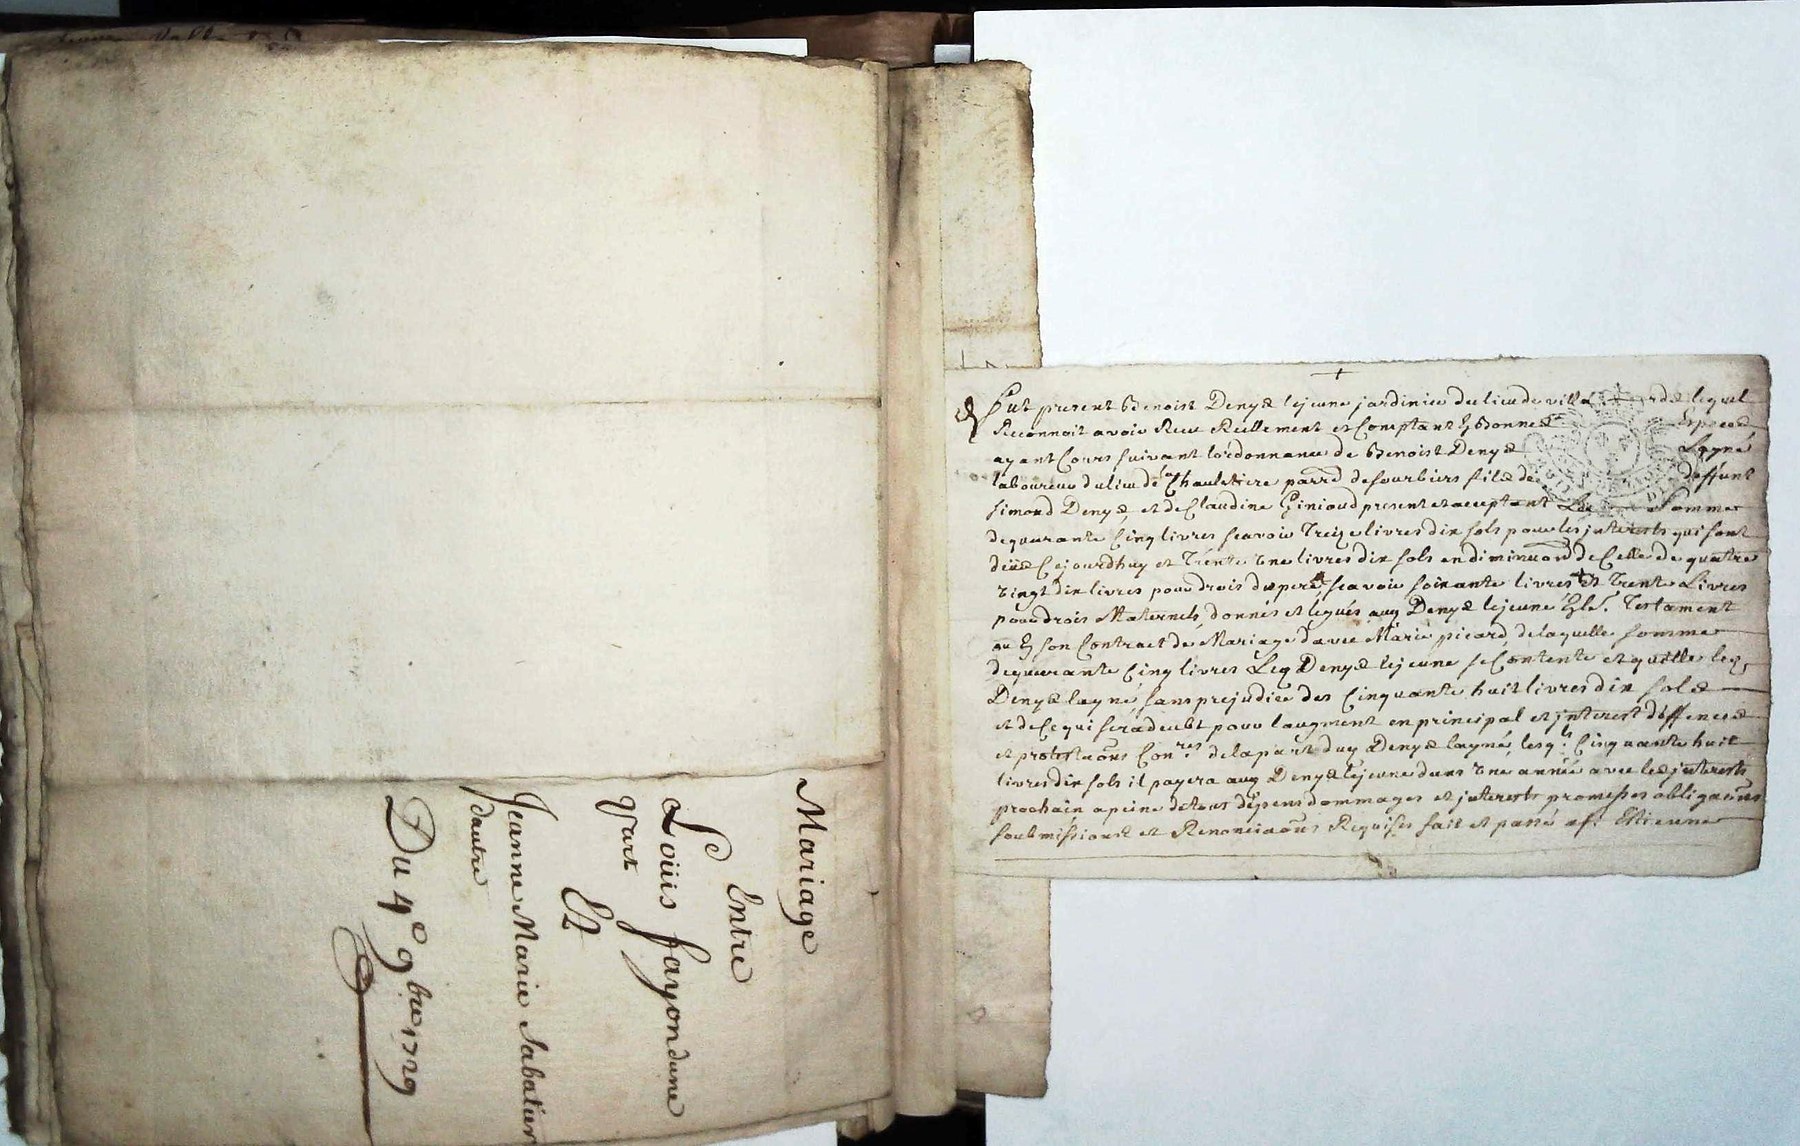 Mariage
Entre
Loüis fayon dune
Part
Et
Jeanne Marie Sabatier
dautre
Du 4e 9bre 1729
fut present Benoist Denys lejeune jardinier du lieu de lequel
Reconnoit avoir Receu Reellement et Comptant En Bonnes Especes
ayant Cours suivant lordonnance de Benoist Denys Layné
laboureur du lieu de la parre de fourbiers fils de deffunt
simond Denys, et de Claudine present et acceptant La Somme
dequarante Cinq livres scavoir Treize livres dix sols pour les jnterests qui sont
deüs Cejourdhuy et Trente une livres dix sols en diminuaon de Celle de quatre
vingt dix livres pour droits scavoir soixante livres et Trente Livres
pour drois Maternels donnés et legués auq Denys lejeune Testament
ou En son Contract de Mariage davec Marie picard, de laquelle somme
dequarante Cinq livres Leq Denys lejeune se Contente et quitte leq
Denys layné, sans prejudice des Cinquante huit livres dix sols
et de Ce qui sera deubt pour laugment en principal et jnterest deffences
et protestaons Conres de la part duq Denys layné, lesqls Cinquante huit
livres dix sols il payera auq Denys lejeune dans une année avec les jnterests
prochain a peine de tous dépens dommages et jnterests promesses obligaons
soubmissions et Renonciaons Requises fait et passé a St Estienne